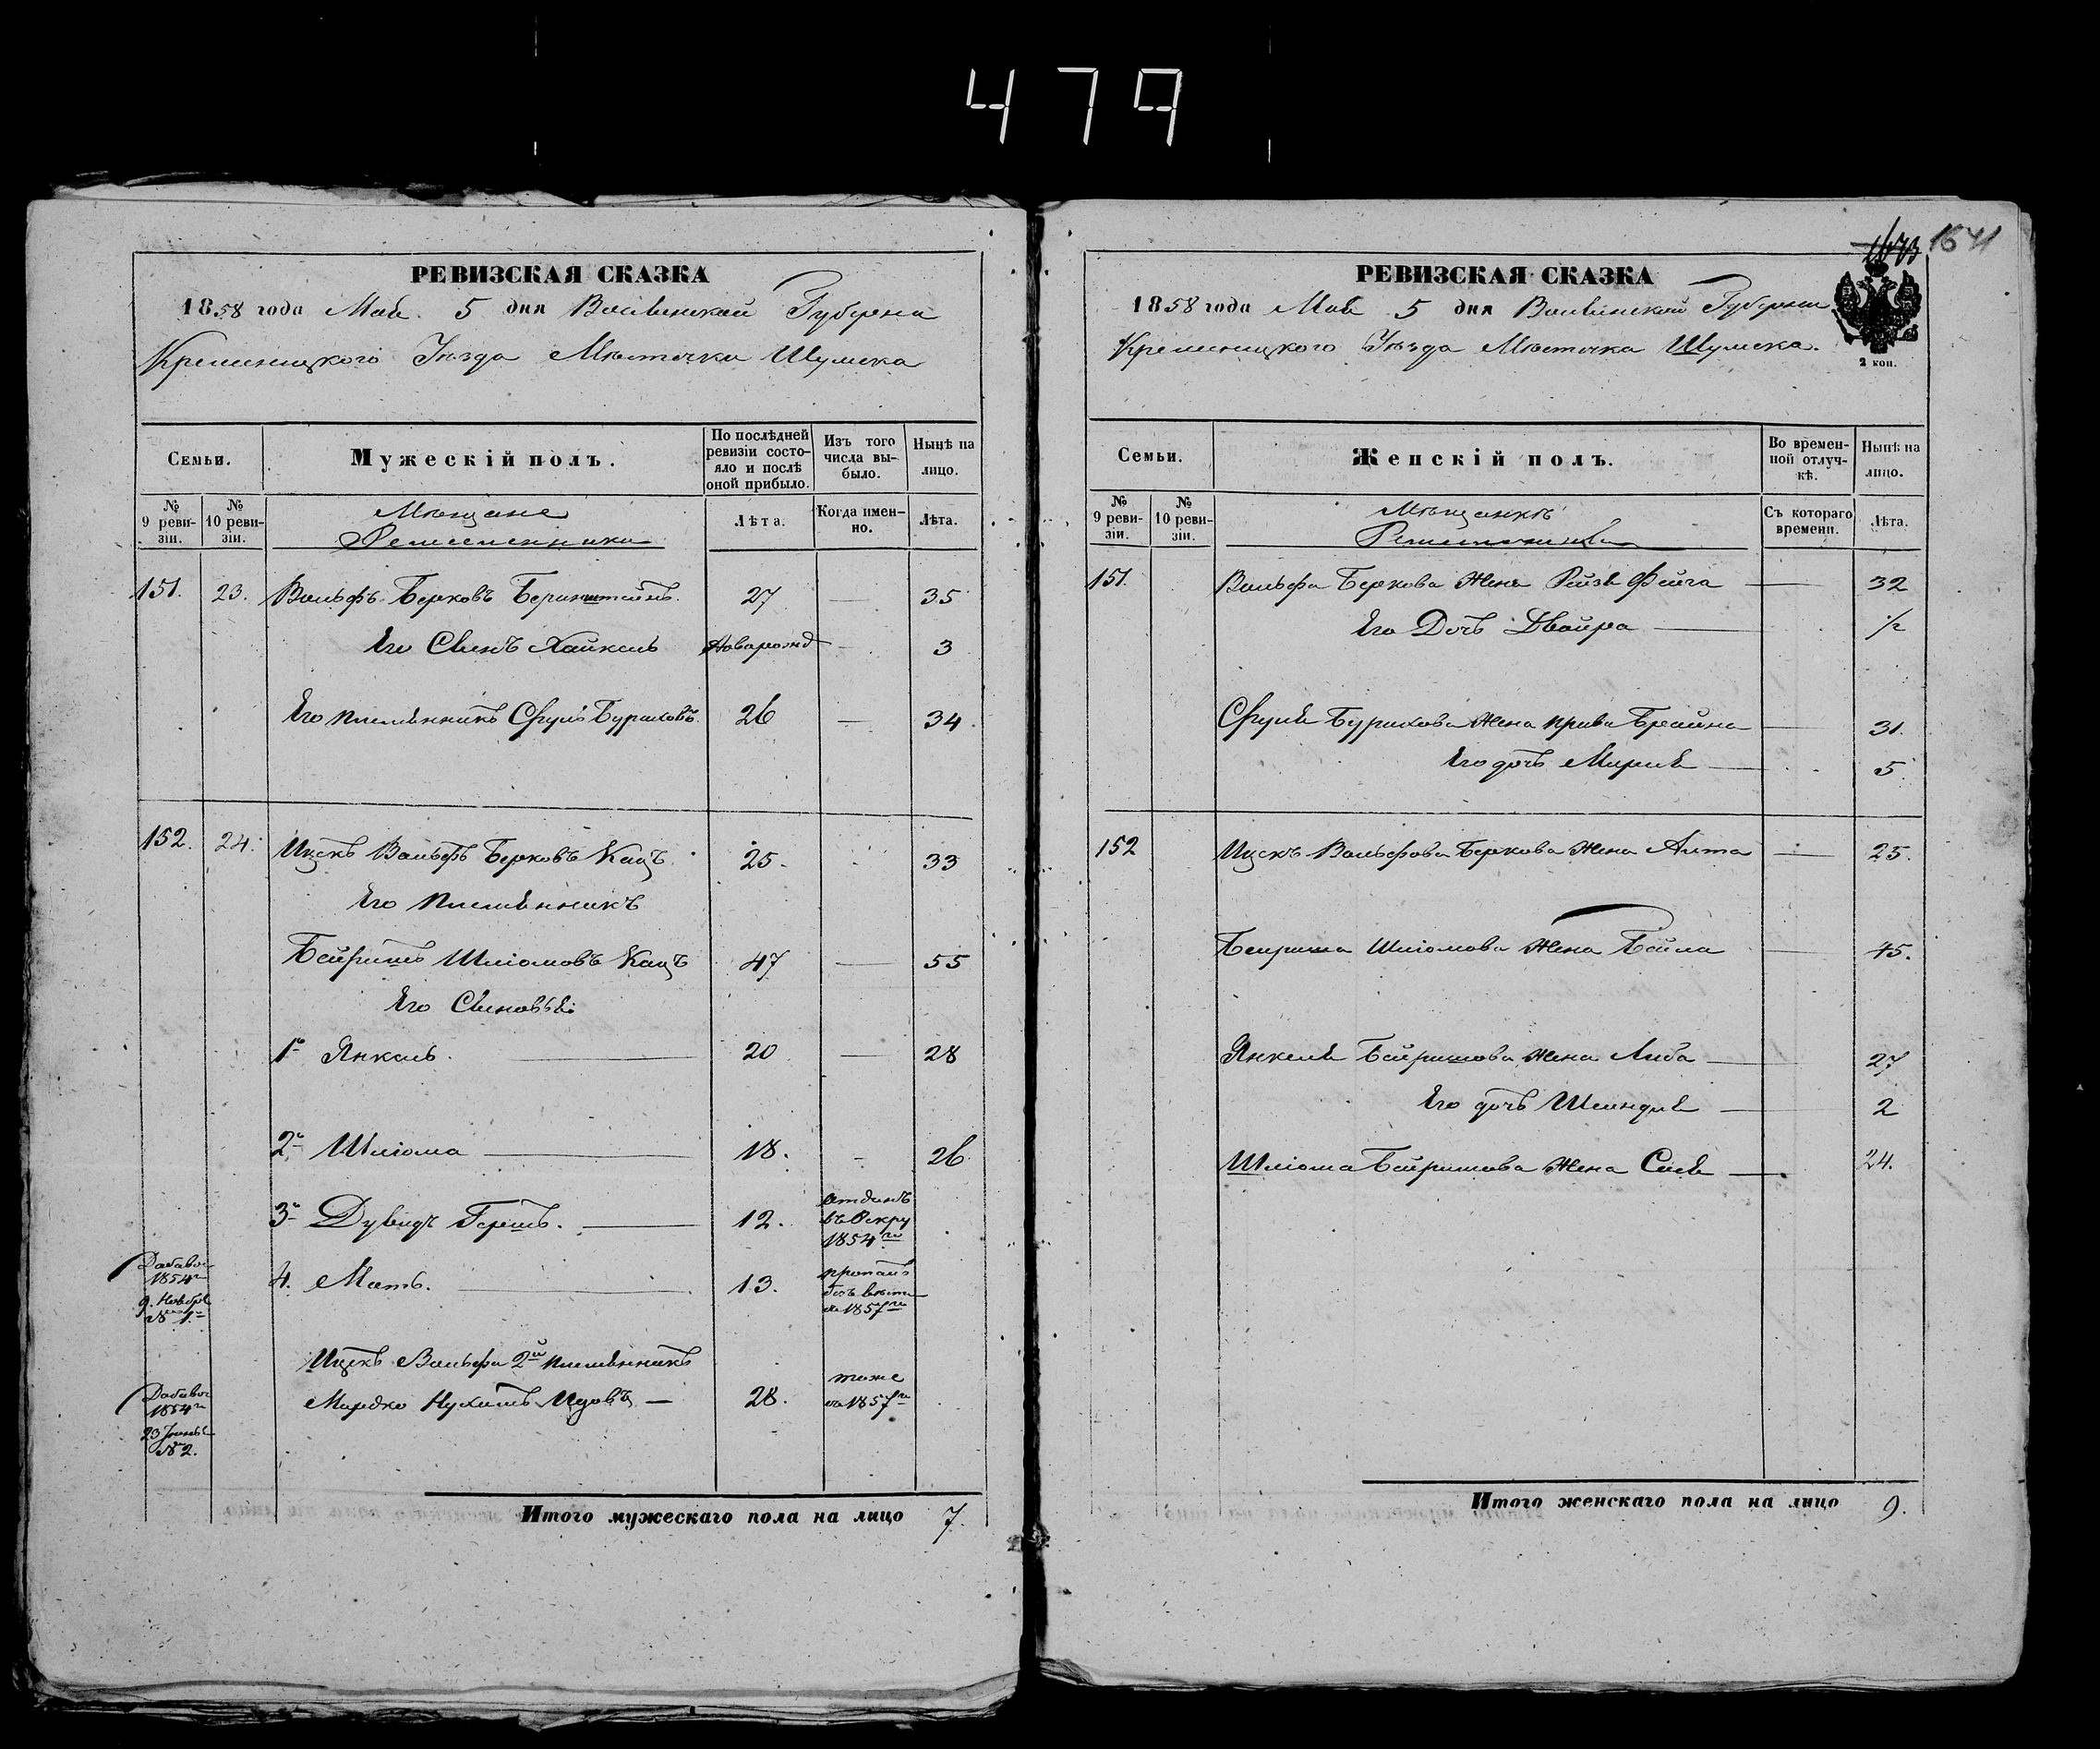 479
РЕВИЗСКАЯ СКАЗКА
1858 года Мая 5 дня Волынской Губерніи
Кременецкого Уѣзда Мѣстечка Шумска
Семьи.
Мужескій полъ.
По послѣдней ревизіи состояло и послѣ оной прибыло.
Изъ того числа выбыло.
Нынѣ на лицо.
№ 9 ревизіи.
№ 10 ревизіи.
Мѣщане
Ремесленники
Лѣта.
Когда именно.
Лѣта.
151. 23. Вольфъ Берковъ Беринштейнъ. 27 — 35
Его Сынъ Хайкель Новорожд — 3
Его племянникъ Сруль Буриховъ. 26 — 34
152. 24. Ицекъ Вольфъ Берковъ Кацъ. 25. 33
Его Племянникъ
Бейришъ Шліомовъ Кацъ 47 — 55
Его Сыновья:
1й Янкель. — 20 — 28
2й Шліома — 18. - 26
3й Дувидъ Гершъ. — 12. отданъ въ Рекру 1854го
4. Мать. — 13. пропалъ безъ вѣсти 1857го
1854
9. Ноября
№ 1
Ицекъ Вольфа 2й племянникъ
Мордко Нухимъ — 28. тоже 1857го
1854
23
№ 2.
Итого мужескаго пола на лицо 7.
1641
РЕВИЗСКАЯ СКАЗКА
1858 года Мая 5 дня Волынской Губерніи
Кременецкого Уѣзда Мѣстечка Шумска.
2 коп.
Семьи.
Женскій полъ.
Во временной отлучкѣ.
Нынѣ на лицо.
№ 9 ревизіи.
№ 10 ревизіи.
Мѣщанкѣ
Съ котораго времени.
Лѣта.
151. Вольфа Беркова Жена Рейзя Фейга — 32
Его Дочь Двойра — ½
Сруля Бурихова Жена Брайна — 31.
Его дочь Мирля — 5
152 Ицекъ Вольфова Беркова Жена Алта — 25.
Беириша Шліомова Жена Бейла — 45.
Янкеля Бейришова Жена Либа — 27
Его дочь Шендля — 2
Шліома Бейришова Жена Сося — 24.
Итого женскаго пола на лицо 9.